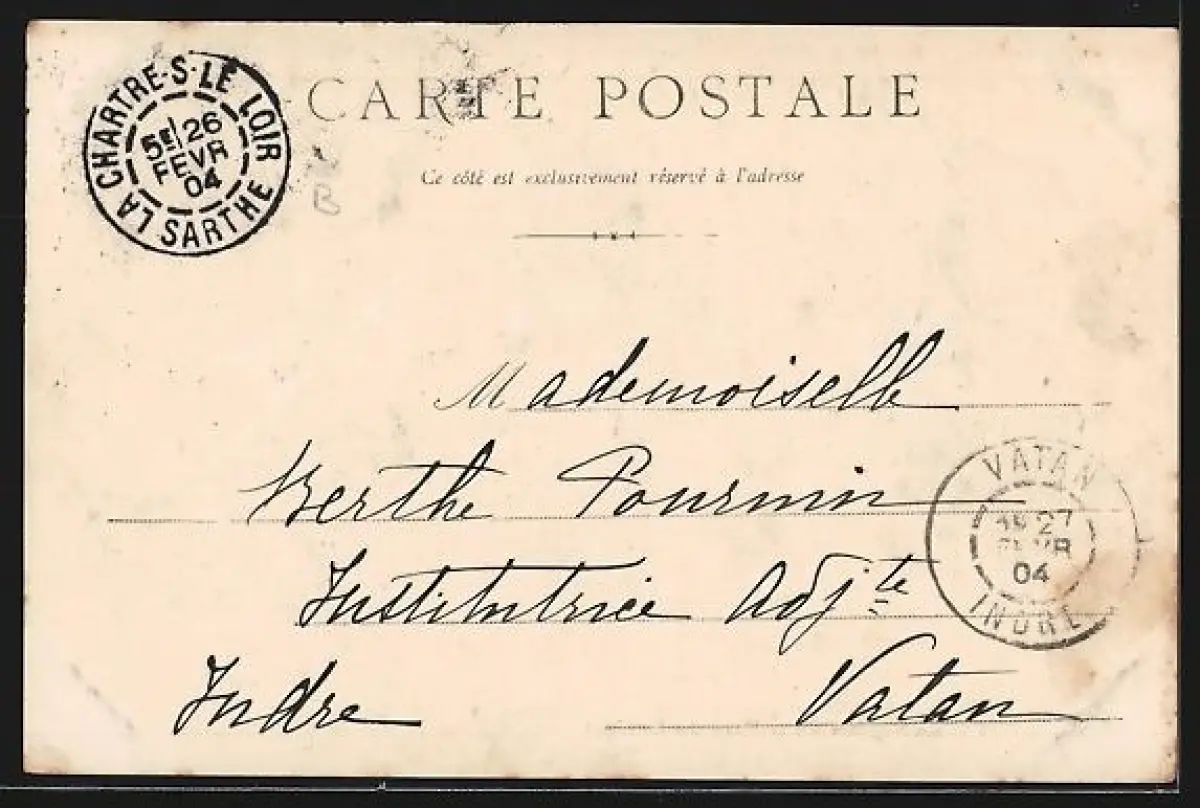 CARTE POSTALE
Ce côté est exclusivement réservé à l'adresse
LA CHARTRE-S-LE LOIR
5E 26
FEVR
04
SARTHE
B
Mademoiselle
Berthe Pournin
Institutrice Adjte
Vatan
Indre
VATAN
27
FEVR
04
INDRE